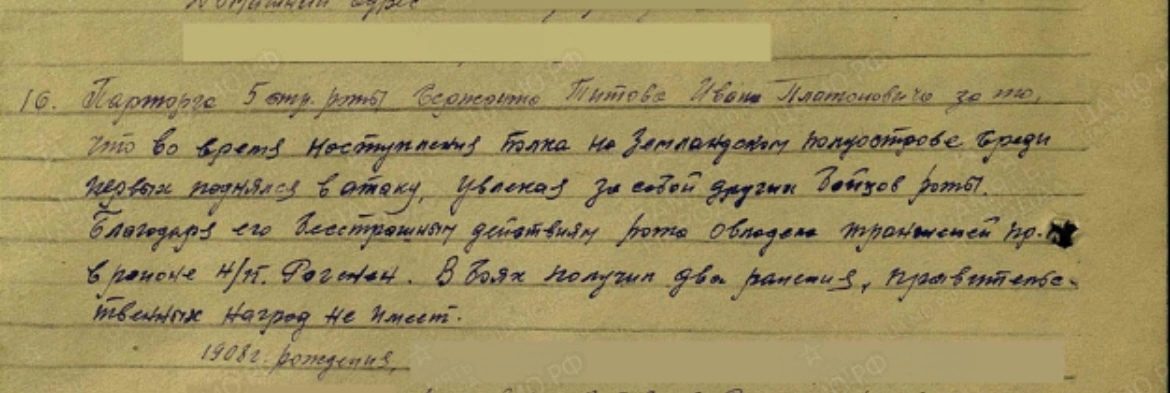 Домашний адрес
16. Парторга 5 стр. роты Сержанта Титова Ивана Платоновича за то,
что во время наступления полка на Земландском полуострове среди
первых поднялся в атаку, увлекая за собой других бойцов роты.
Благодаря его бесстрашным действиям рота овладела траншеей пр-
в районе Н/П. Рогенен. В боях получил два ранения, правительс-
твенных наград не имеет.
1908г. рождения,